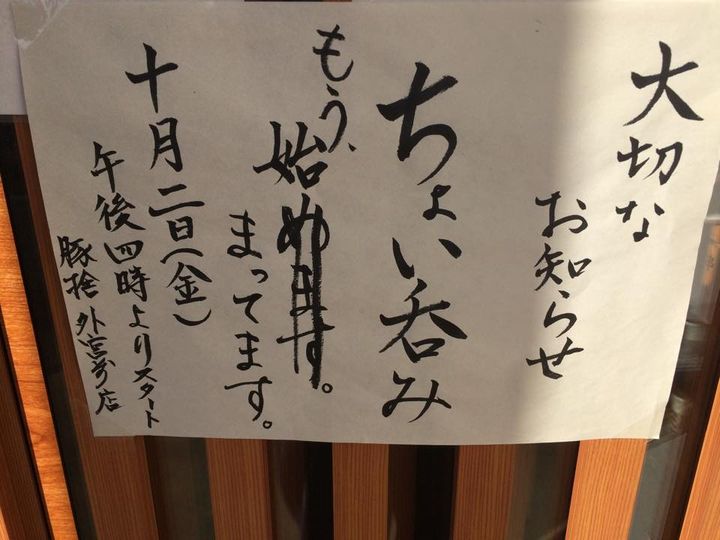 大切な
お知らせ
ちょい呑み
もう、
始めます。
まってます。
十月二日(金)
午後四時よりスタート
豚捨 外宮前店